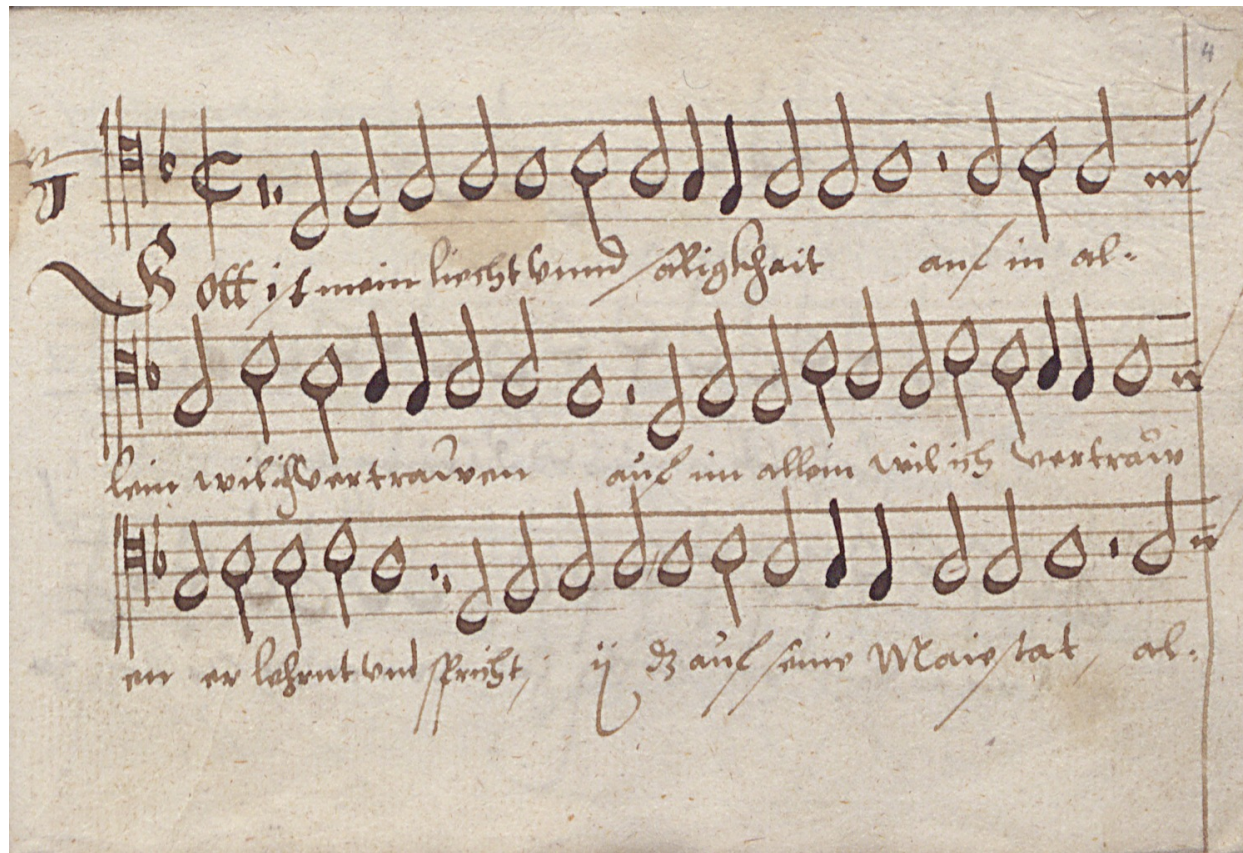 4
Gott ist mein liecht vnnd säligkhait auf in al-
lein wil ich vertrauwen auf im allein wil ich vertrauw
en er lehrnt vnd spricht, ij dz auf seine Maiestat, al-